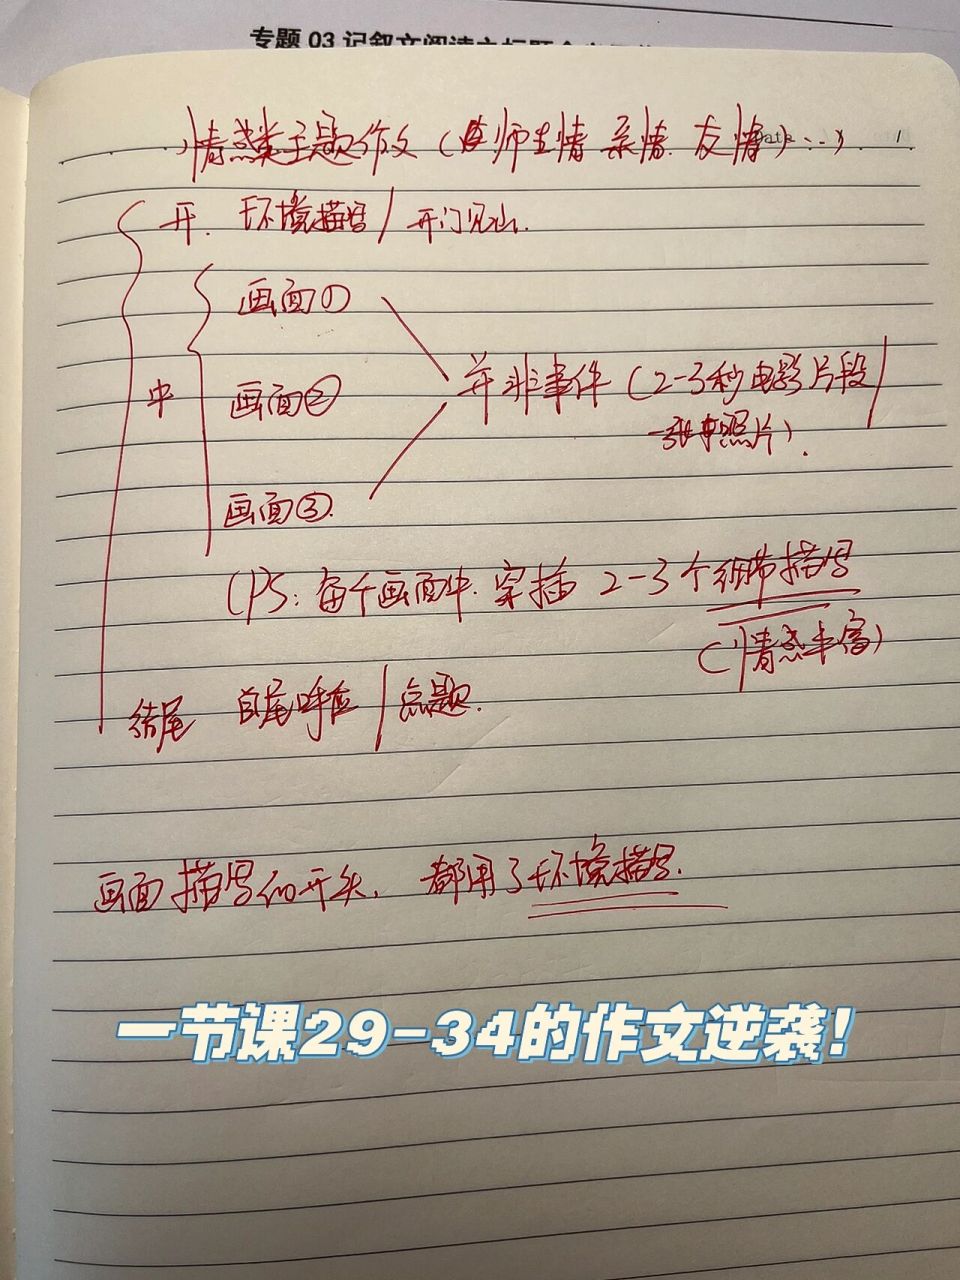 专题 03 记叙文阅读之标题含义
情感类主题作文（师生情 亲情 友情）
Date
开. 环境描写/开门见山.
画面①
中
画面②
并非事件（2-3秒电影片段/
一张照片）.
画面③.
（PS: 每个画面中.穿插 2-3个细节描写
（情感丰富）
结尾 首尾呼应/点题.
画面描写的开头. 都用了环境描写.
一节课29-34的作文逆袭!